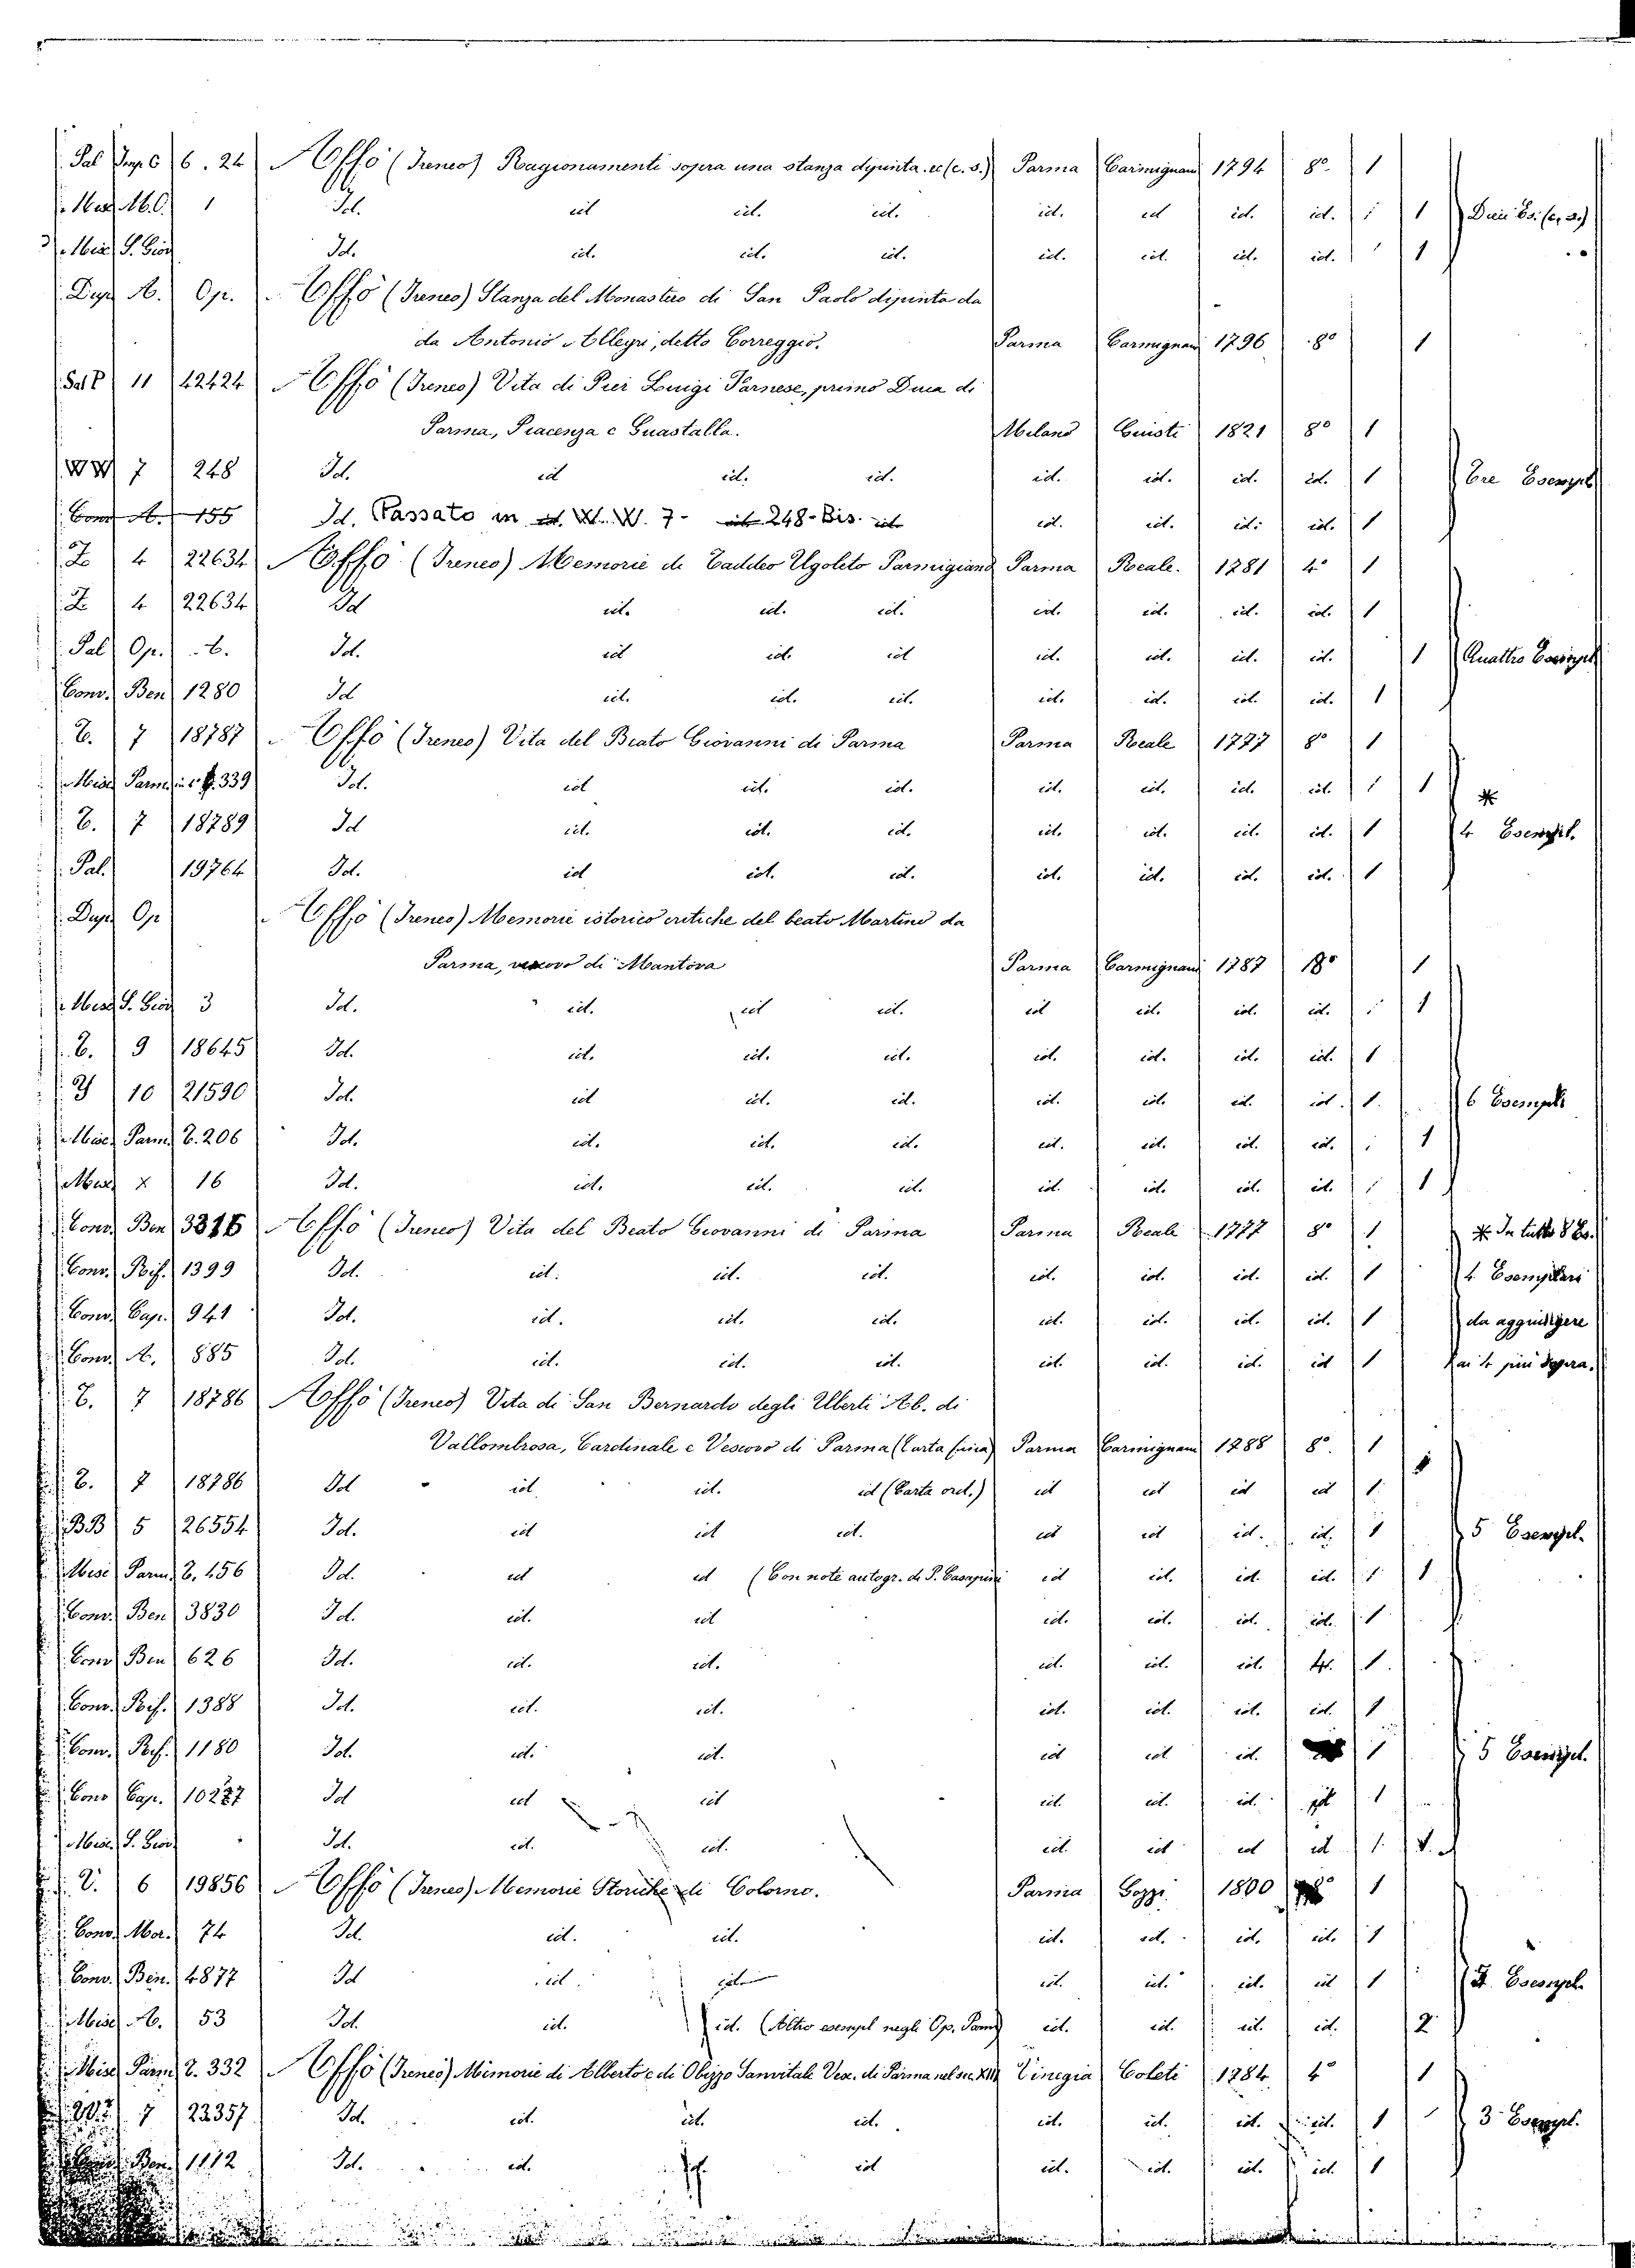 Pal Imp. C 6. 24 Affò (Ireneo) Ragionamenti sopra una stanza dipinta. ec (c. s.) Parma Carmignani 1794 8º 1
Misc. M.C. 1 Id. id id. id. id. id id. id. 1 Duei Es. (c. s.)
Misc. S. Giov. Id. id. id. id. id. id. id. id. 1
Dup. A. Op. Affò (Ireneo) Stanza del Monastero di San Paolo dipinta da
da Antonio Allegri, detto Correggio. Parma Carmignani 1796 8º 1
Sal. P 11 42424 Affò (Ireneo) Vita di Pier Luigi Farnese, primo Duca di
Parma, Piacenza e Guastalla. Milano Giusti 1821 8º 1
WW 7 248 Id. id id. id. id. id. id. id. 1 Tre Esempl.
Conv. A. 155 Id. Passato in id. W. W. 7- id 248-Bis. id id. id. id. id. 1
Z 4 22634 Affò (Ireneo) Memorie di Taddeo Ugoleto Parmigiano Parma Reale. 1781 4º 1
Z 4 22634 Id id. id. id. id. id. id. id. 1
Pal Op. Id. id id. id id. id. id. id. 1 Quattro Esempl.
Conv. Ben 1280 Id id. id. id. id. id. id. id. 1
T. 7 18787 Affò (Ireneo) Vita del Beato Giovanni di Parma Parma Reale 1777 8º 1
Misc. Parm. 339 Id. id id. id. id. id. id. id. 1 *
T. 7 18789 Id id. id. id. id. id. id. id. 1 4 Esempl.
Pal. 19764 Id. id id. id. id. id. id. id. 1
Dup. Op Affò (Ireneo) Memorie istorico critiche del beato Martino da
Parma, vescovo di Mantova Parma Carmignani 1787 18º 1
Misc. S. Giov 3 Id. id. id id. id id. id. id. 1
T. 9 18645 Id. id. id. id. id. id. id. id. 1
Y 10 21590 Id. id id. id. id. id. id. id. 1. 6 Esempli
Misc. Parm. T. 206 Id. id. id. id. id. id. id. id. 1
Misc. X 16 Id. id. id. id. id. id. id. id. 1
Conv. Ben 3316 Affò (Ireneo) Vita del Beato Giovanni di Parma Parma Reale 1777 8º 1 * In tutto 8 Es.
Conv. Rif. 1399 Id. id. id. id. id. id. id. id. 1 4 Esemplari
Conv. Cap. 941 Id. id. id. id. id. id. id. id. 1 da aggiungere
Conv. A. 885 Id. id. id. id. id. id. id. id 1 ai 4 più sopra.
T. 7 18786 Affò (Ireneo) Vita di San Bernardo degli Uberti Ab. di
Vallombrosa, Cardinale e Vescovo di Parma (Carta fina) Parma Carmignani 1788 8º. 1
T. 7 18786 Id id. id. id (Carta ord.) id id id id 1
BB 5 26554 Id. id id id. id id id. id. 1 5 Esempl.
Misc Parm. T. 156 Id. id id (Con note autogr. di P. Casapini id id. id. id. 1
Conv. Ben 3830 Id. id. id id. id. id. id. 1
Conv Ben 626 Id. id. id. id. id. id. 1
Conv. Rif. 1388 Id. id. id. id. id. id. id. 1
Conv. Rif. 1180 Id. id. id. id id id. 1 5 Esempl.
Conv Cap. 10277 Id id id id. id. id. id 1
Misc. S. Giov Id. id. id. id. id id id 1.
V. 6 19856 Affò (Ireneo) Memorie Storiche di Colorno. Parma Gozzi. 1800 8º 1
Conv. Mor. 74 Id. id. id. id. id. id. id. 1
Conv. Ben. 4877 Id id. id id. id. id. id 1 Esempl.
Misc. A. 53 Id. id. id. (Altro esempl negli Op. Parm) id. id. id. id. 2
Misc. Parm. T. 332 Affò (Ireneo) Memorie di Alberto e di Obizzo Sanvitale Vesc. di Parma nel sec. XIII Vinegia Coleti 1784 4º 1
7 22357 Id. id. id. id. id. id. id. id. 1 3 Esempl.
Ben. 1112 Id. id. id. id id. id. id. id. 1